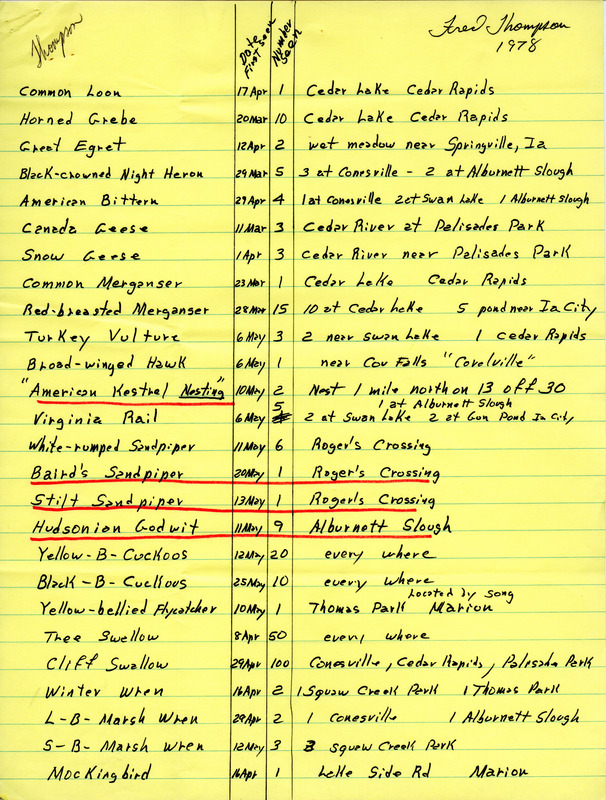 Thompson
Date First seen
Number Seen
Fred Thompson
1978
Common Loon 17 Apr 1 Cedar Lake Cedar Rapids
Horned Grebe 20 Mar 10 Cedar Lake Cedar Rapids
Great Egret 12 Apr 2 wet meadow near Springville, Ia
Black-crowned Night Heron 29 Mar 5 3 at Conesville - 2 at Alburnett Slough
American Bittern 29 Apr 4 1 at Conesville 2 at Swan Lake 1 Alburnett Slough
Canada Geese 11 Mar 3 Cedar River at Palisades Park
Snow Geese 1 Apr 3 Cedar River near Palisades Park
Common Merganser 23 Mar 1 Cedar Lake Cedar Rapids
Red-breasted Merganser 28 Mar 15 10 at Cedar Lake 5 pond near Ia City
Turkey Vulture 6 May 3 2 near Swan Lake 1 Cedar Rapids
Broad-winged Hawk 6 May 1 near Cou Falls "Corelville"
"American Kestrel Nesting" 10 May 2 Nest 1 mile north on 13 off 30
5 1 at Alburnett Slough
Virginia Rail 6 May 2 at Swan Lake 2 at Gun Pond Ia City
White-rumped Sandpiper 11 May 6 Roger's Crossing
Baird's Sandpiper 20 May 1 Roger's Crossing
Stilt Sandpiper 13 May 1 Roger's Crossing
Hudsonian Godwit 11 May 9 Alburnett Slough
Yellow-B-Cuckoos 12 May 20 every where
Black-B-Cuckoos 25 May 10 every where
Located by song
Yellow-bellied Flycatcher 10 May 1 Thomas Park Marion
Thee Swellow 8 Apr 50 every where
Cliff Swallow 29 Apr 100 Conesville, Cedar Rapids, Palisade Park
Winter Wren 16 Apr 2 1 Squaw Creek Park 1 Thomas Park
L-B-Marsh Wren 29 Apr 2 1 Conesville 1 Alburnett Slough
S-B-Marsh Wren 12 May 3 3 squew Creek Park
Mockingbird 16 Apr 1 Lake Side Rd Marion